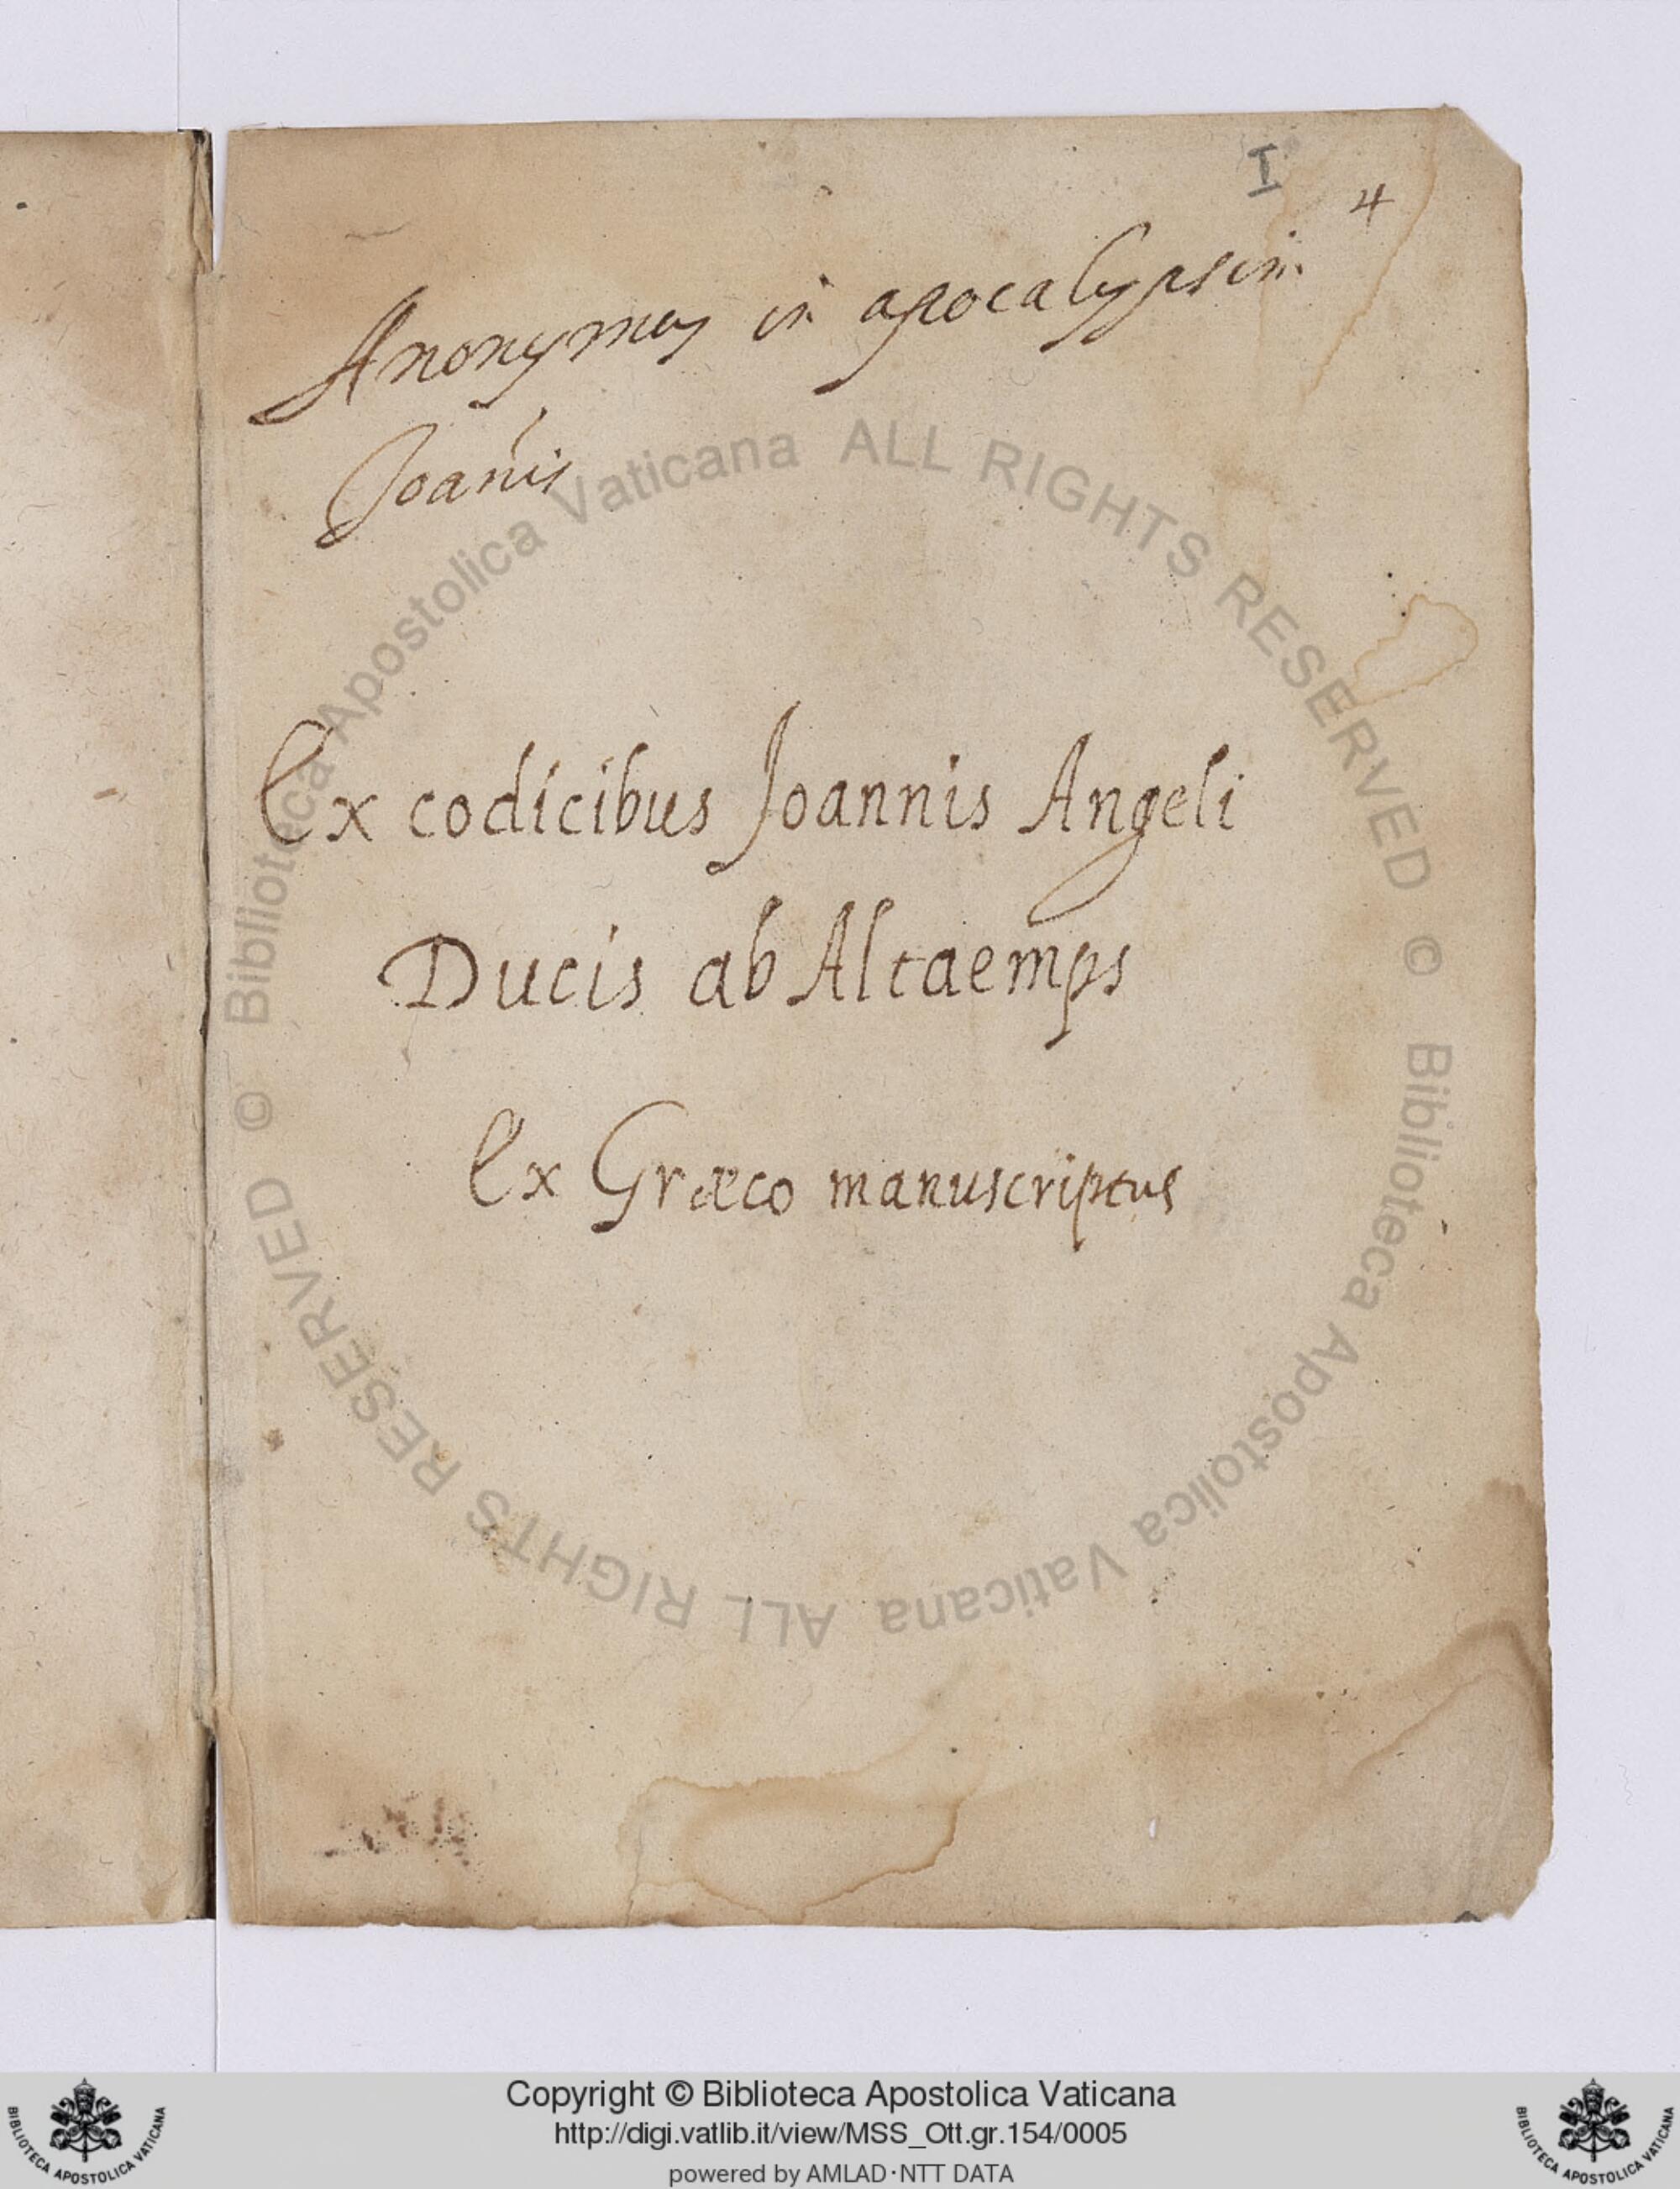 I
4
Anonymus in apocalypsim
Joanis
Ex codicibus Joannis Angeli
Ducis ab Altaemps
Ex Græco manuscriptus
© Biblioteca Apostolica Vaticana ALL RIGHTS RESERVED
© Biblioteca Apostolica Vaticana ALL RIGHTS RESERVED
Copyright © Biblioteca Apostolica Vaticana
http://digi.vatlib.it/view/MSS_Ott.gr.154/0005
powered by AMLAD·NTT DATA
BIBLIOTECA APOSTOLICA VATICANA
BIBLIOTECA APOSTOLICA VATICANA